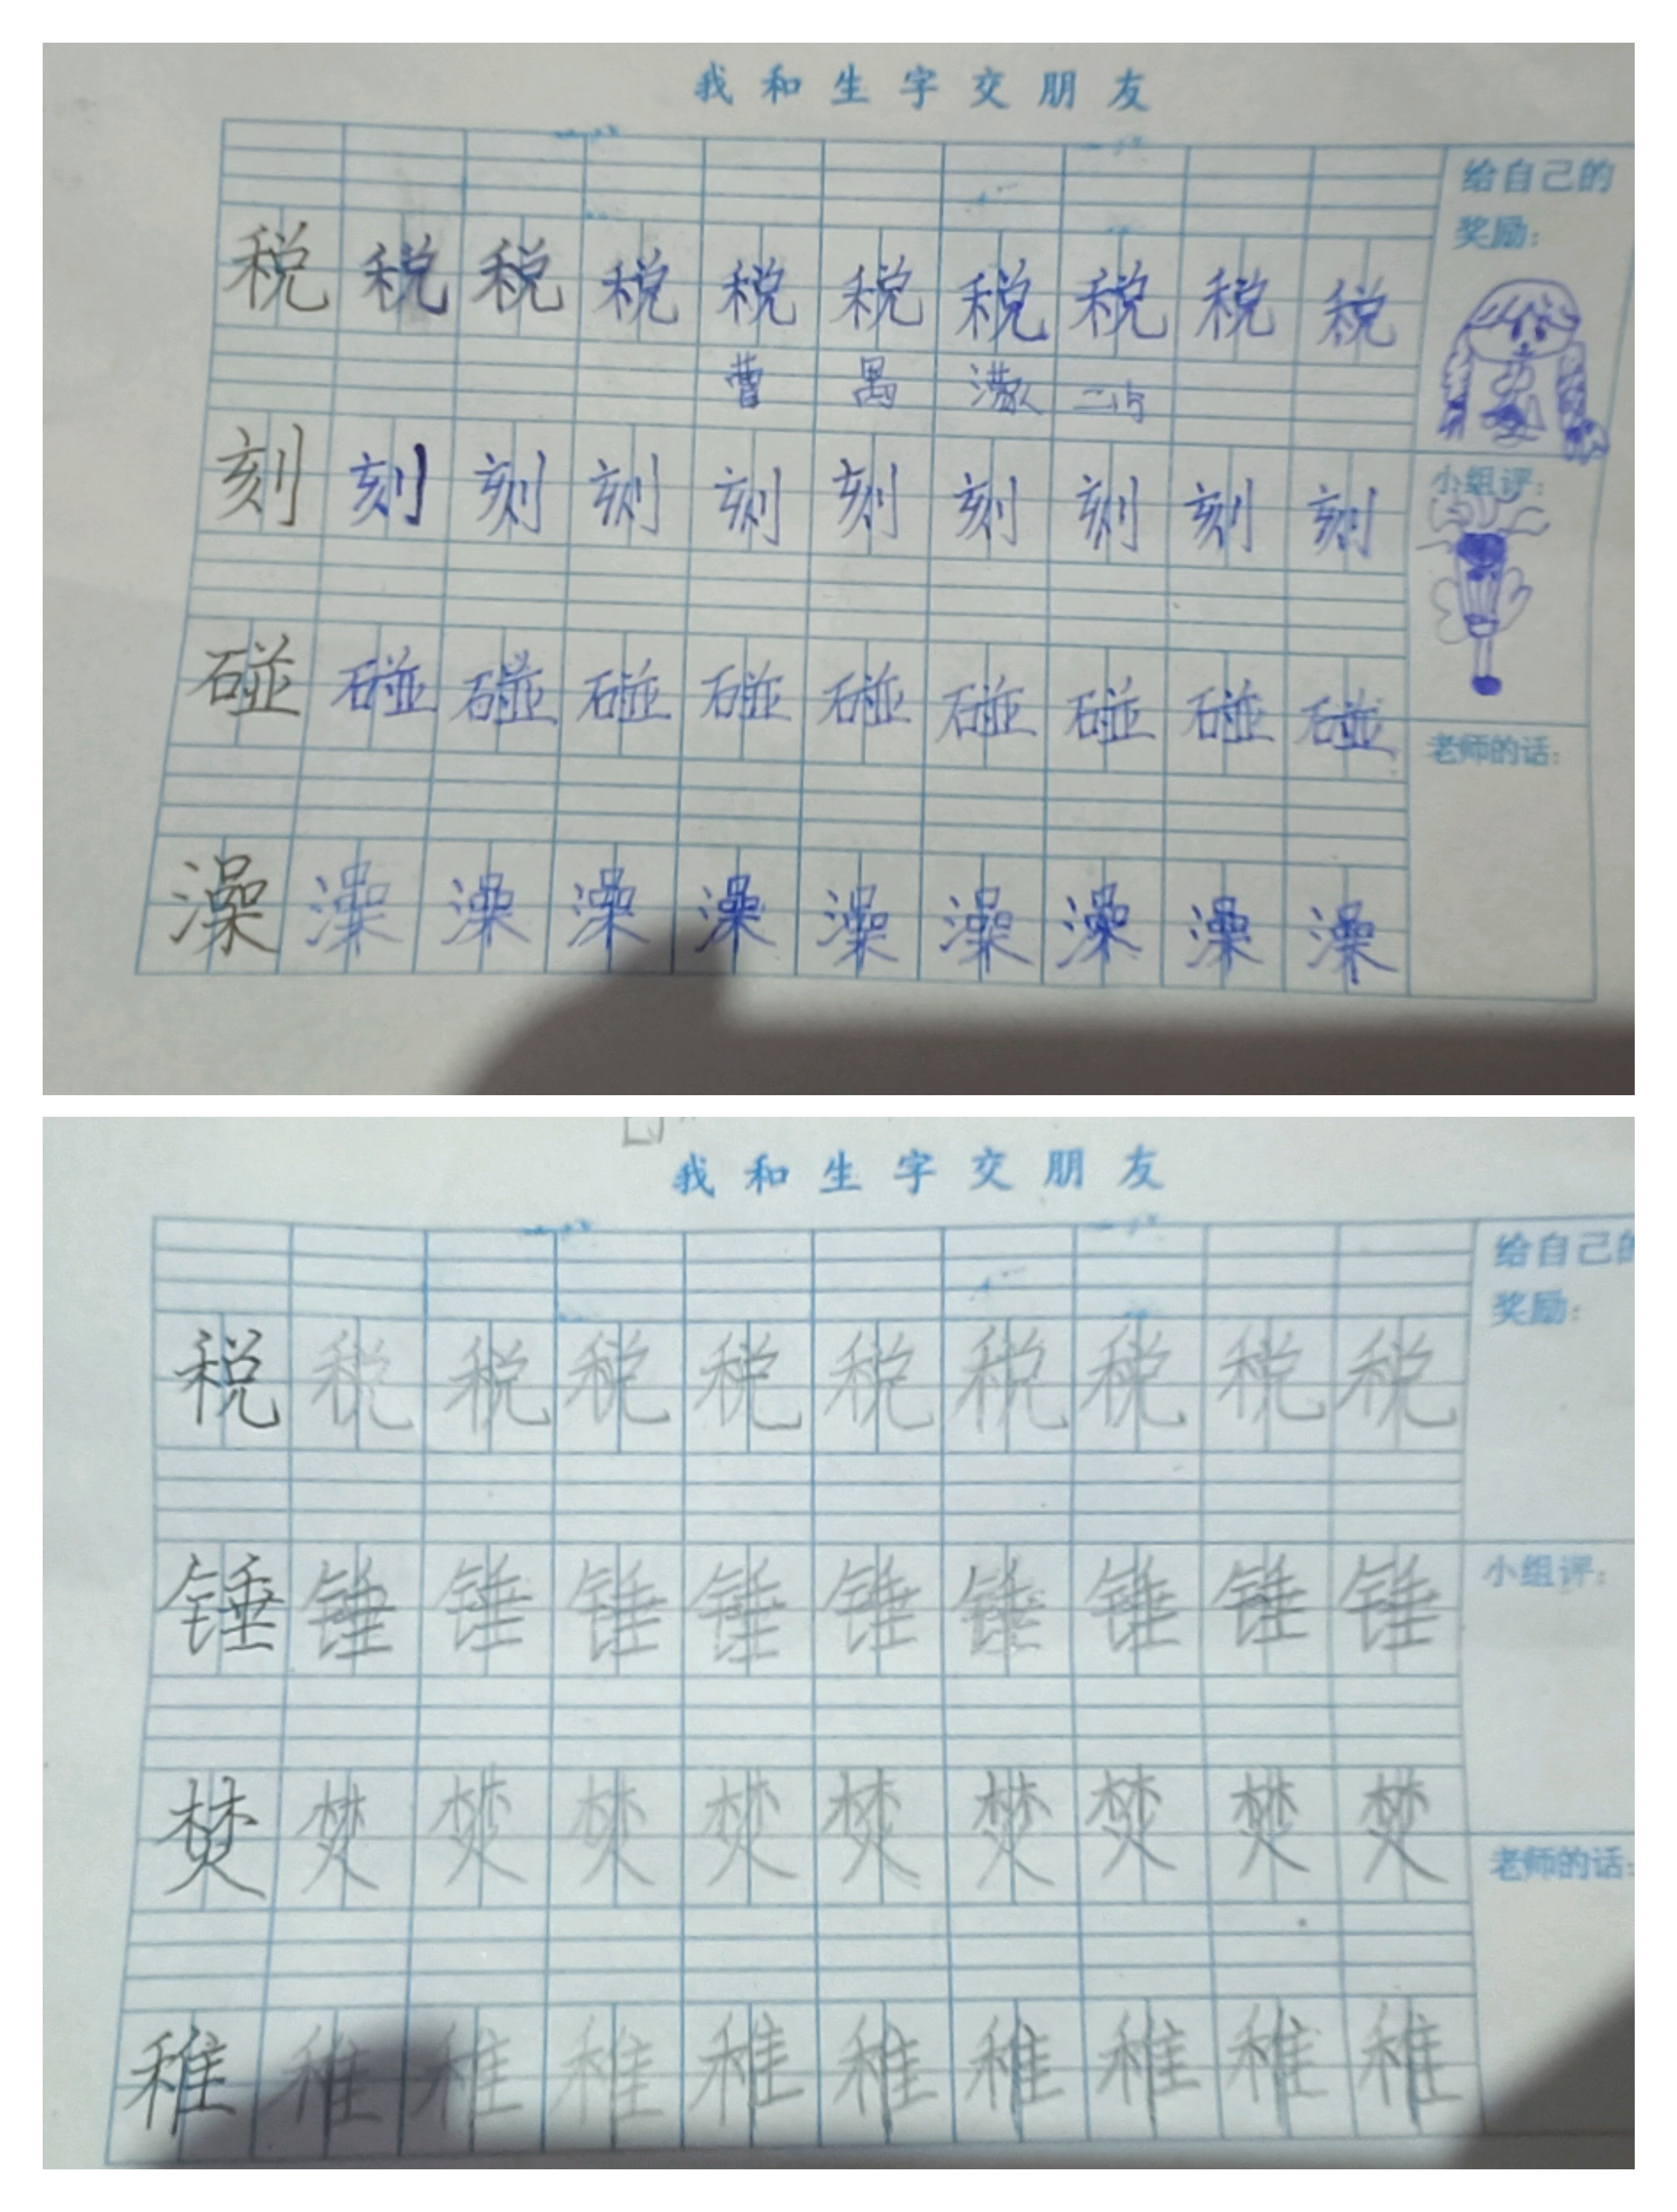 我和生字交朋友
给自己的
奖励:
税 税 税 税 税 税 税 税 税 税
曹
刻 刻 刻 刻 刻 刻 刻 刻 刻 刻
小组评:
碰 碰 碰 碰 碰 碰 碰 碰 碰 碰
老师的话:
澡 澡 澡 澡 澡 澡 澡 澡 澡 澡
我和生字交朋友
给自己的
奖励:
税 税 税 税 税 税 税 税 税 税
锤 锤 锤 锤 锤 锤 锤 锤 锤 锤
小组评:
焚 焚 焚 焚 焚 焚 焚 焚 焚 焚
老师的话:
稚 稚 稚 稚 稚 稚 稚 稚 稚 稚